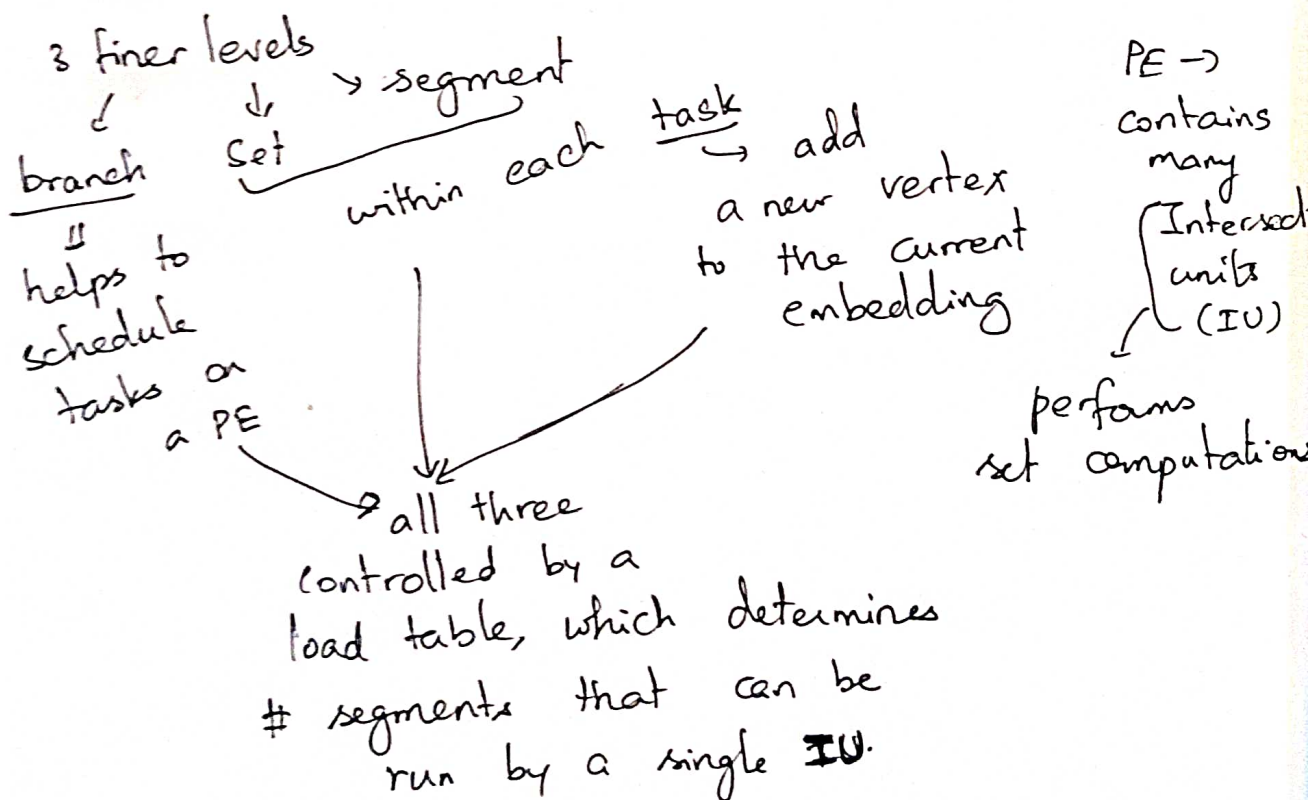 3 finer levels
↙ ↓ ↘ segment
branch
Set
within each task
↳ add
a new vertex
to the current
embedding
⇓
helps to
schedule
tasks on
a PE
all three
controlled by a
load table, which determines
# segments that can be
run by a single IU.
PE →
contains
many
Intersect
units
(IU)
performs
set computations